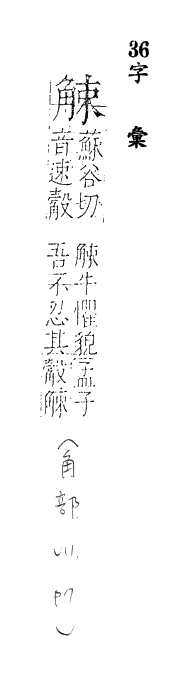 36 字彙
觫
蘇谷切
音速觳
觫牛懼貌孟子
吾不忍其觳觫
（角部）